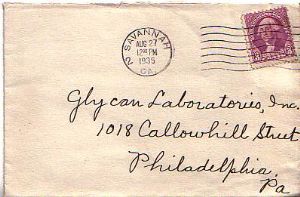 SAVANNAH
AUG 27
12 30 PM
1935
GA.
2
Glycan Laboratories, Inc.
1018 Callowhill Street
Philadelphia
Pa